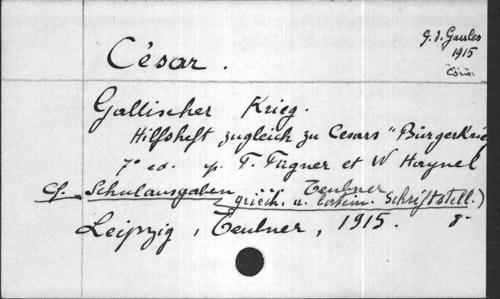 G. d. Gaules
1915
César.
Gallischer Krieg.
Hilfsheft zugleich zu Cesars "Bürgerkrieg
7e ed. p. F. Fügner et W Haynel
cf. Schulausgaben Teubner
griech. u. latein. Schriftstell.)
Leipzig, Teubner, 1915. 8-